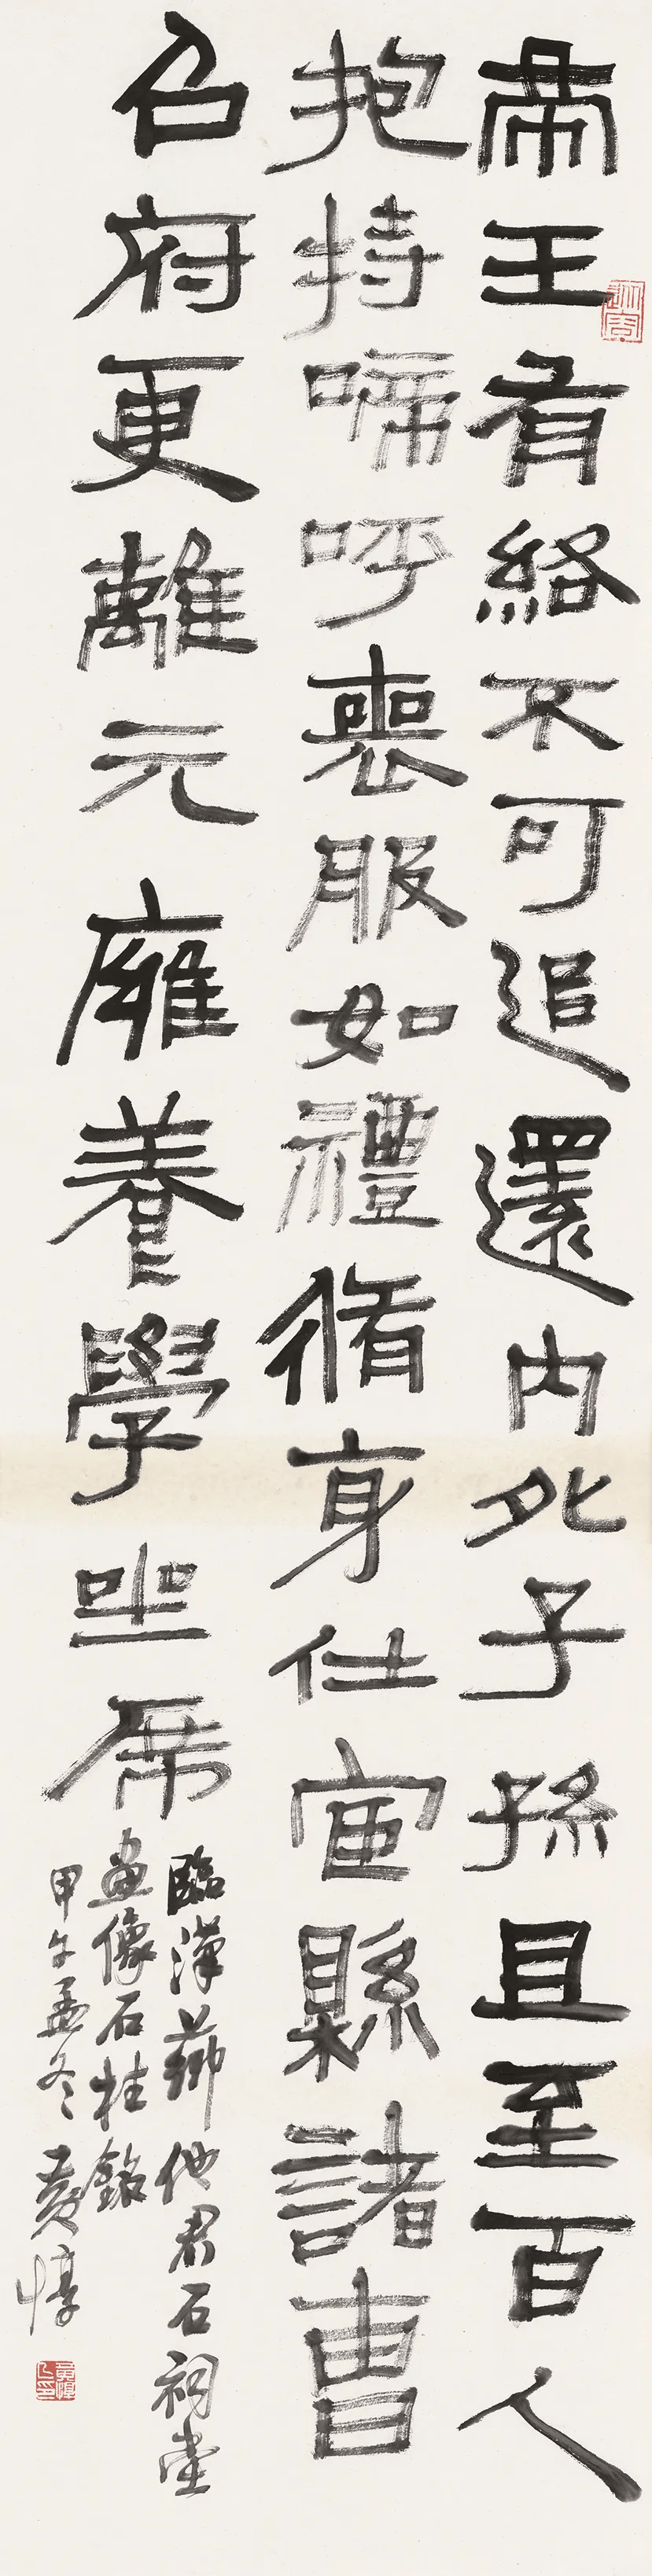 帝王有終不可追還內死子孫且至百人
抱持啼呼喪服如禮脩身仕宦縣諸曹
召府更離元雍養學坐席
臨漢薌他君石祠堂
畫像石柱銘
甲午孟冬 黃惇